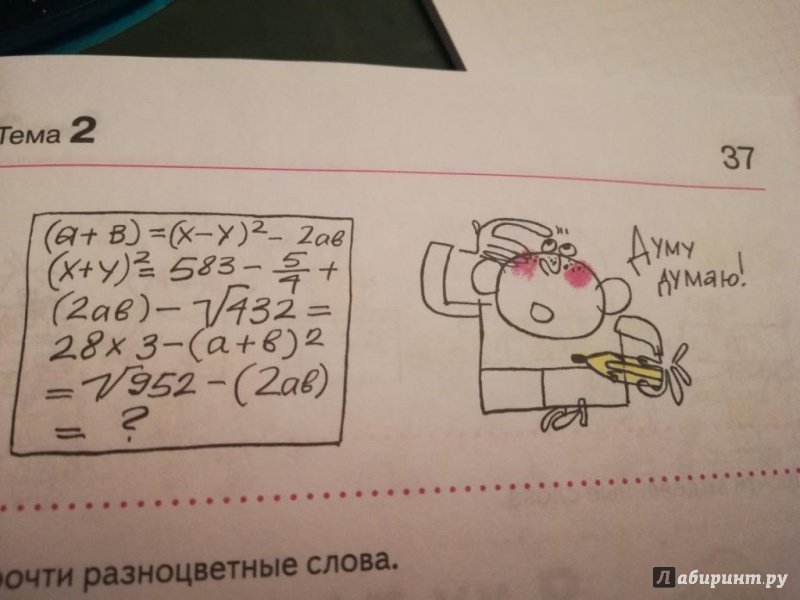 Тема 2
37
(a + в) = (x – y)² – 2ав
(x+y)² = 583 – 5/4 +
(2ав) – √432 =
28 x 3 – (a + в) 2
= √952 – (2ав)
= ?
Думу
думаю!
рочти разноцветные слова.
Лабиринт.ру